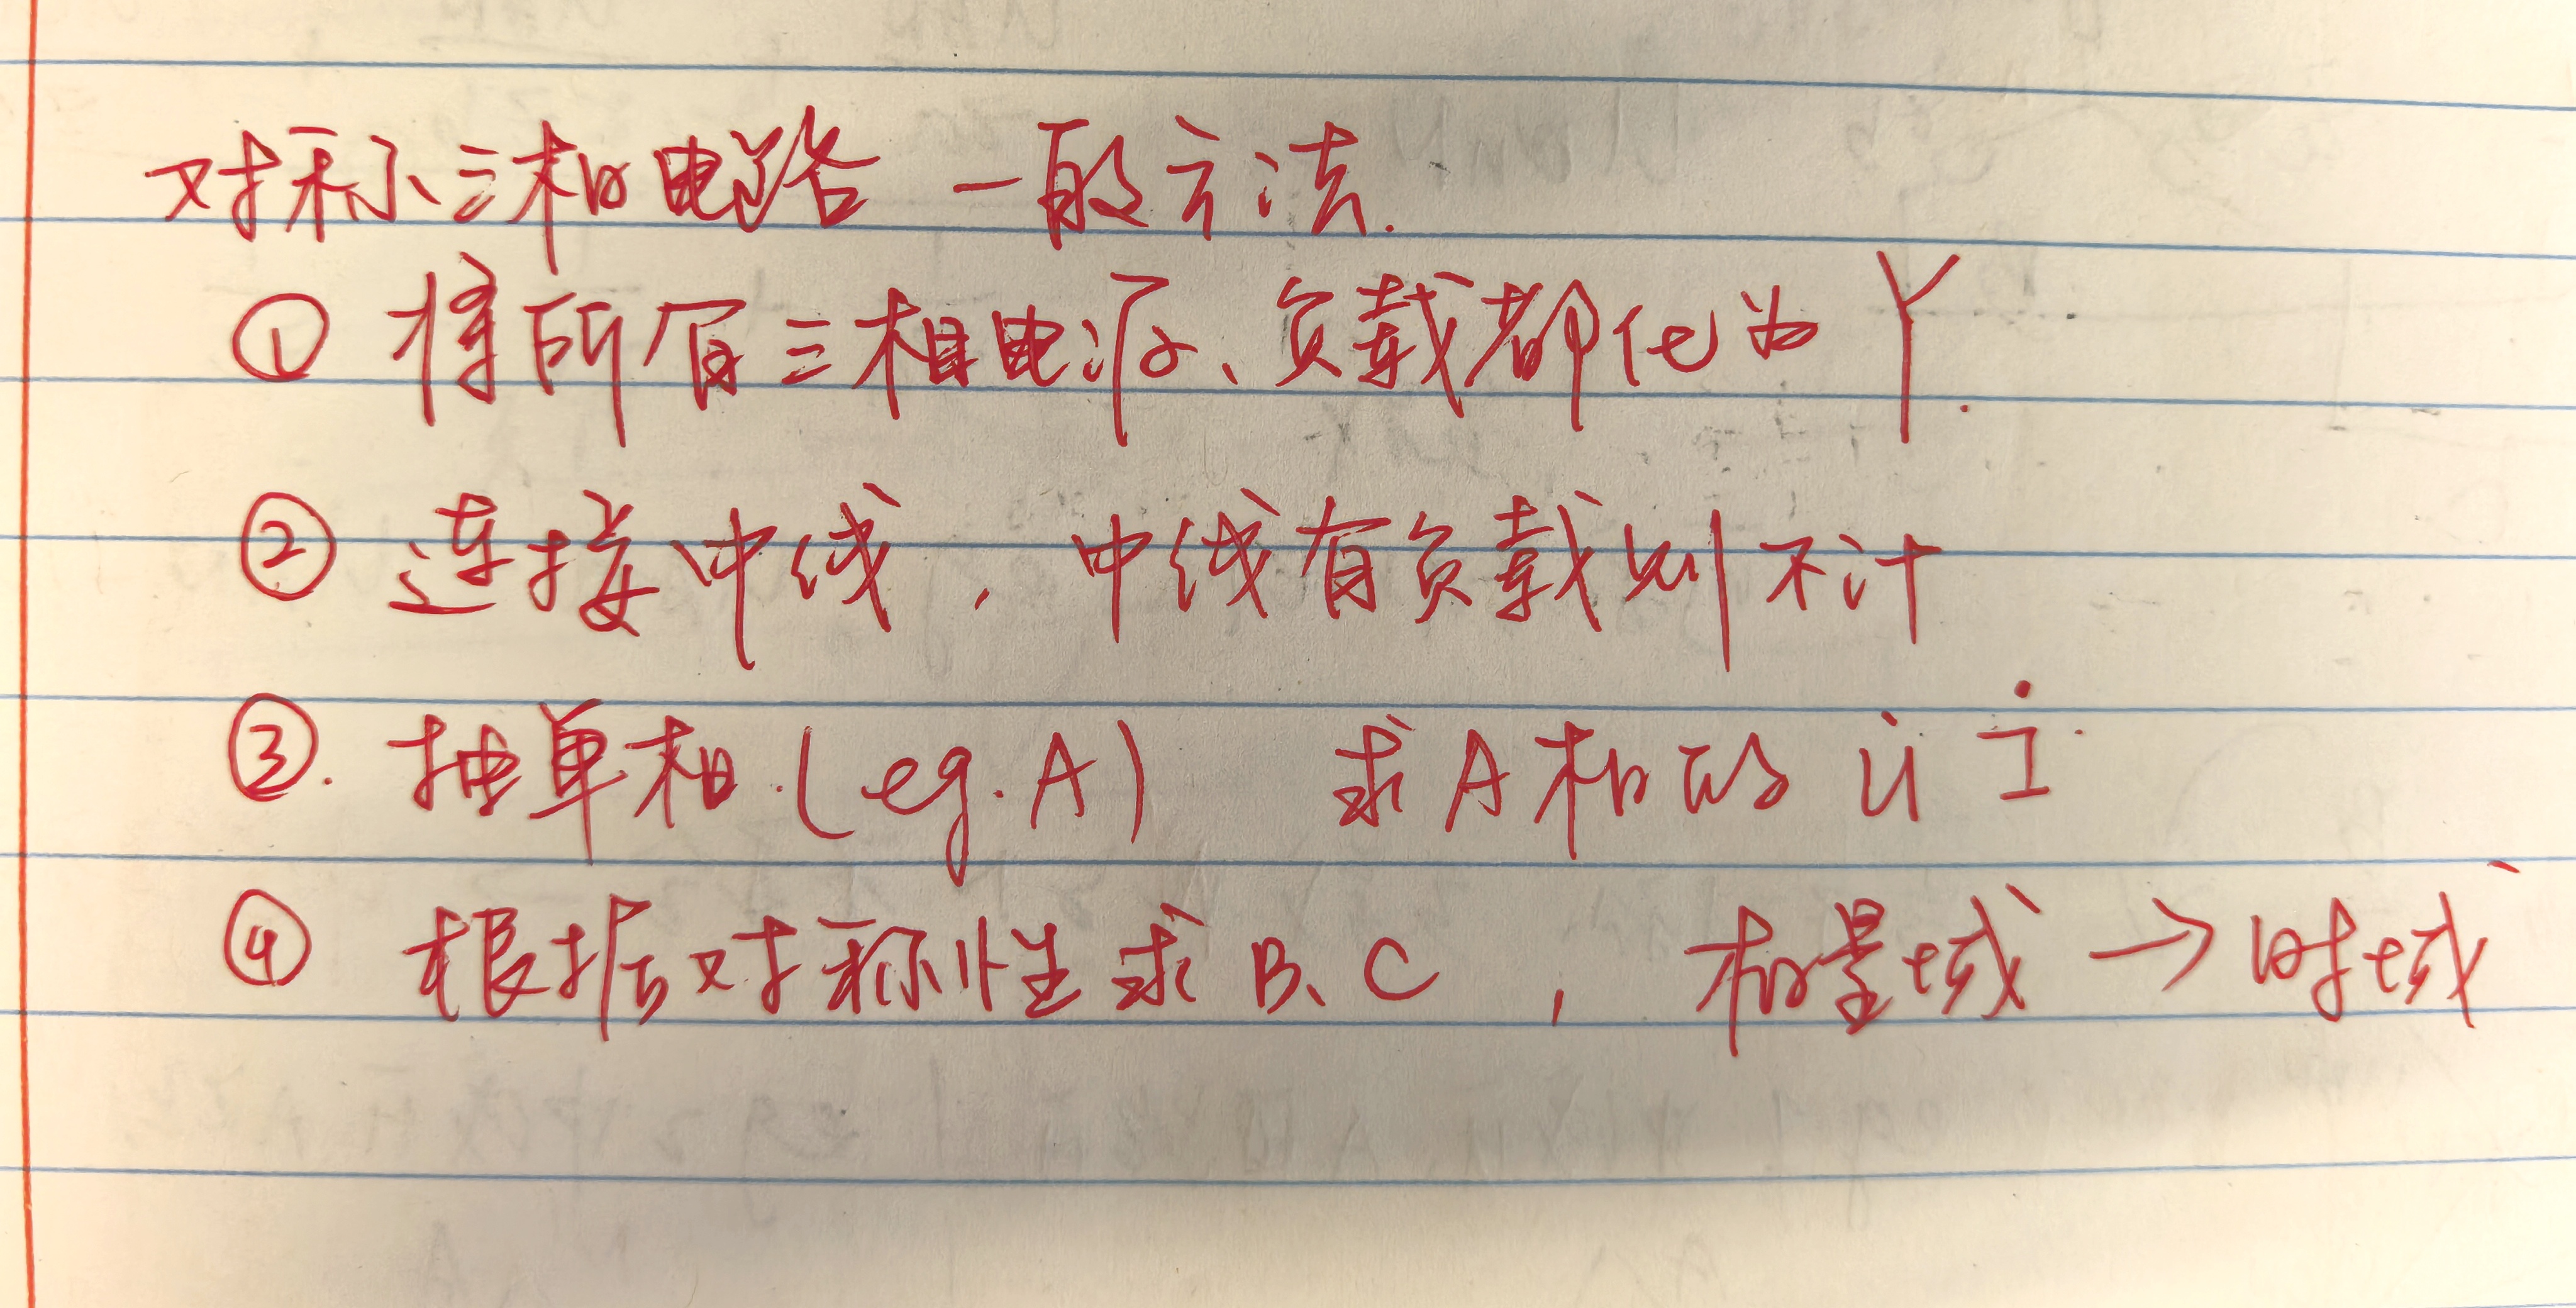 对称三相电路 一般方法.
① 将所有三相电源、负载都化为 Y.
② 连接中线，中线有负载则不计
③. 抽单相.(eg.A) 求A相的 U̇ İ
④ 根据对称性求 B、C ，相量域 → 时域